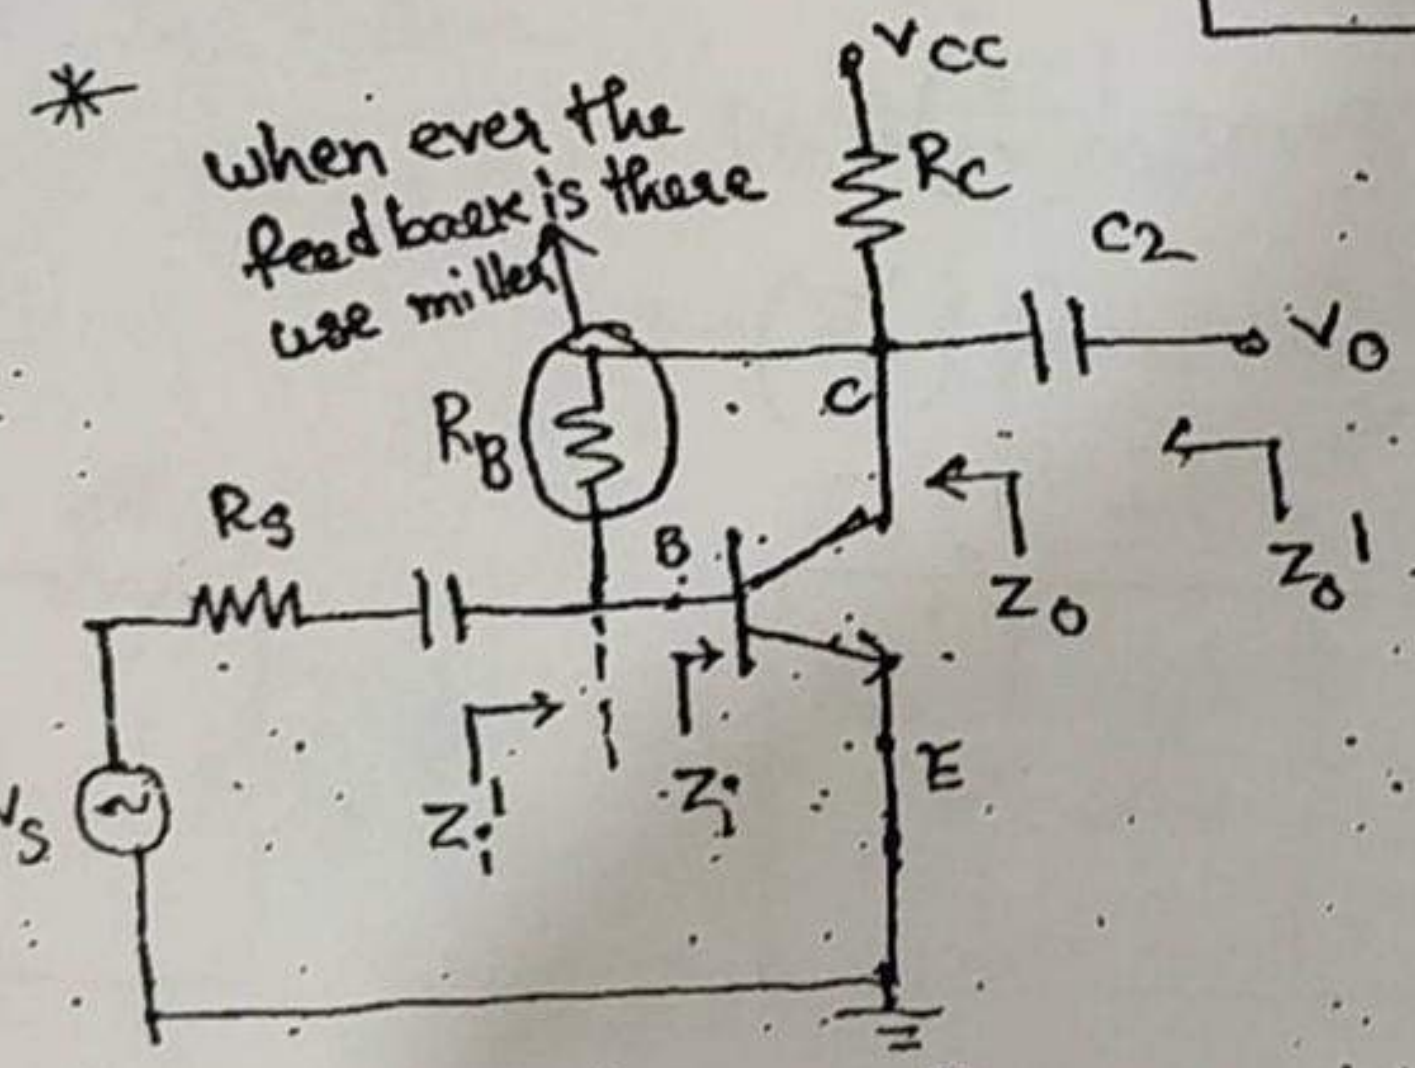 *
when ever the
feed back is there
use miller
VCC
RC
C2
VO
RB
C
RS
B
ZO
ZO'
Zi'
Zi
E
VS
~